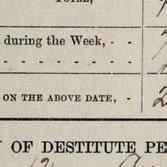 TOTAL,
during the Week, - -
- - - - - -
ON THE ABOVE DATE, - 2
OF DESTITUTE PE